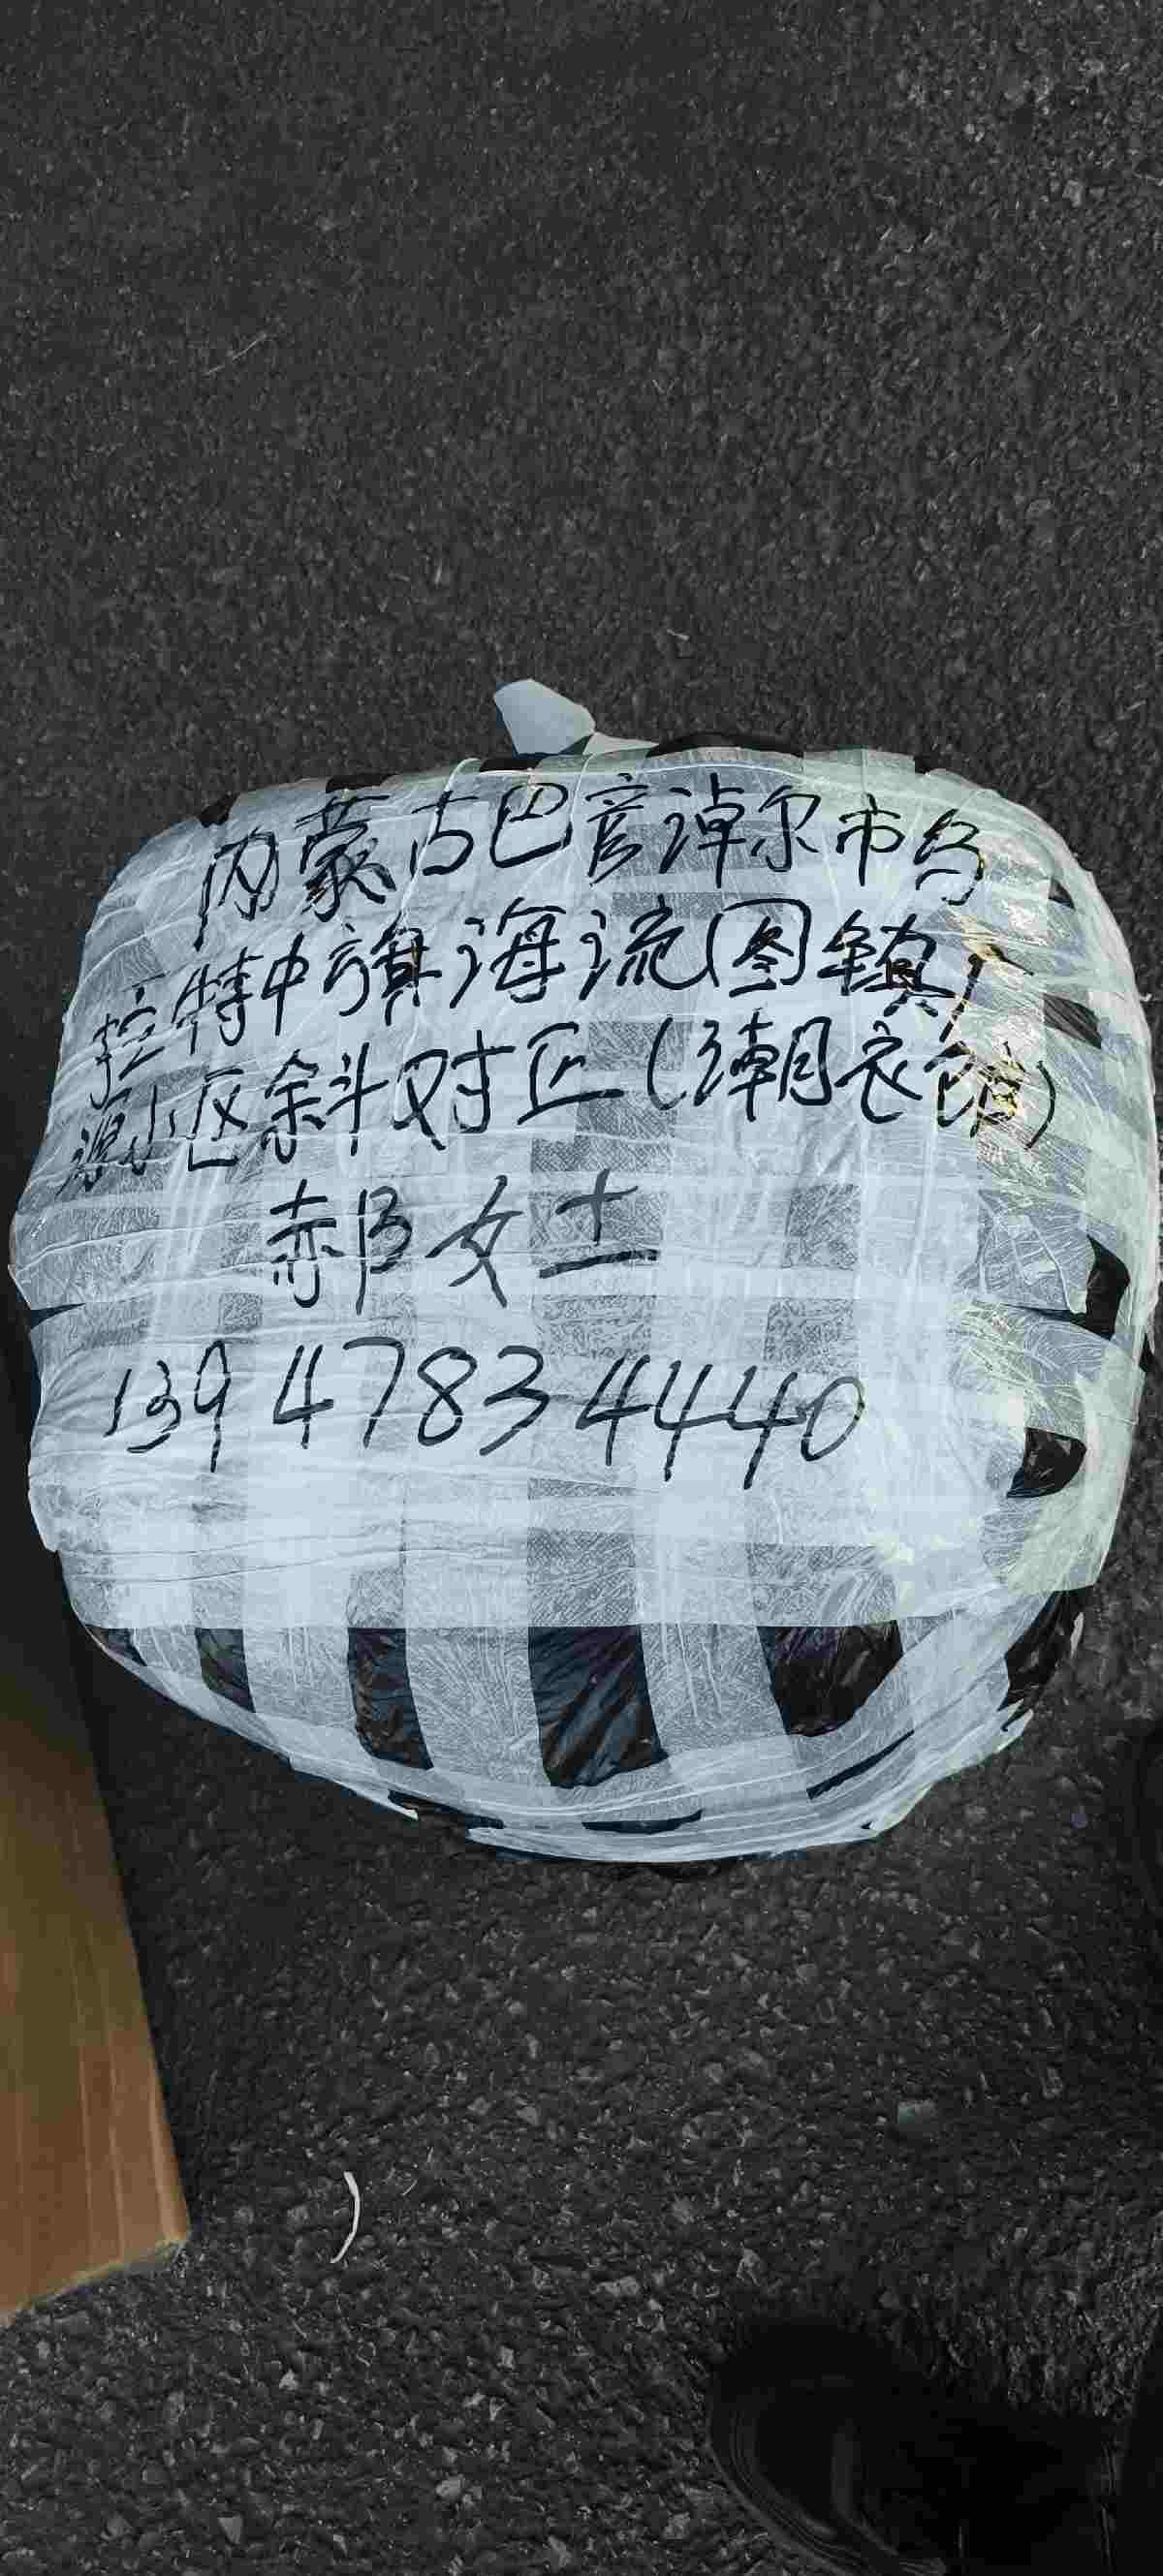 内蒙古巴彦淖尔市乌
拉特中旗海流图镇广
源小区斜对正(潮衣馆)
郝女士
139 4783 4440